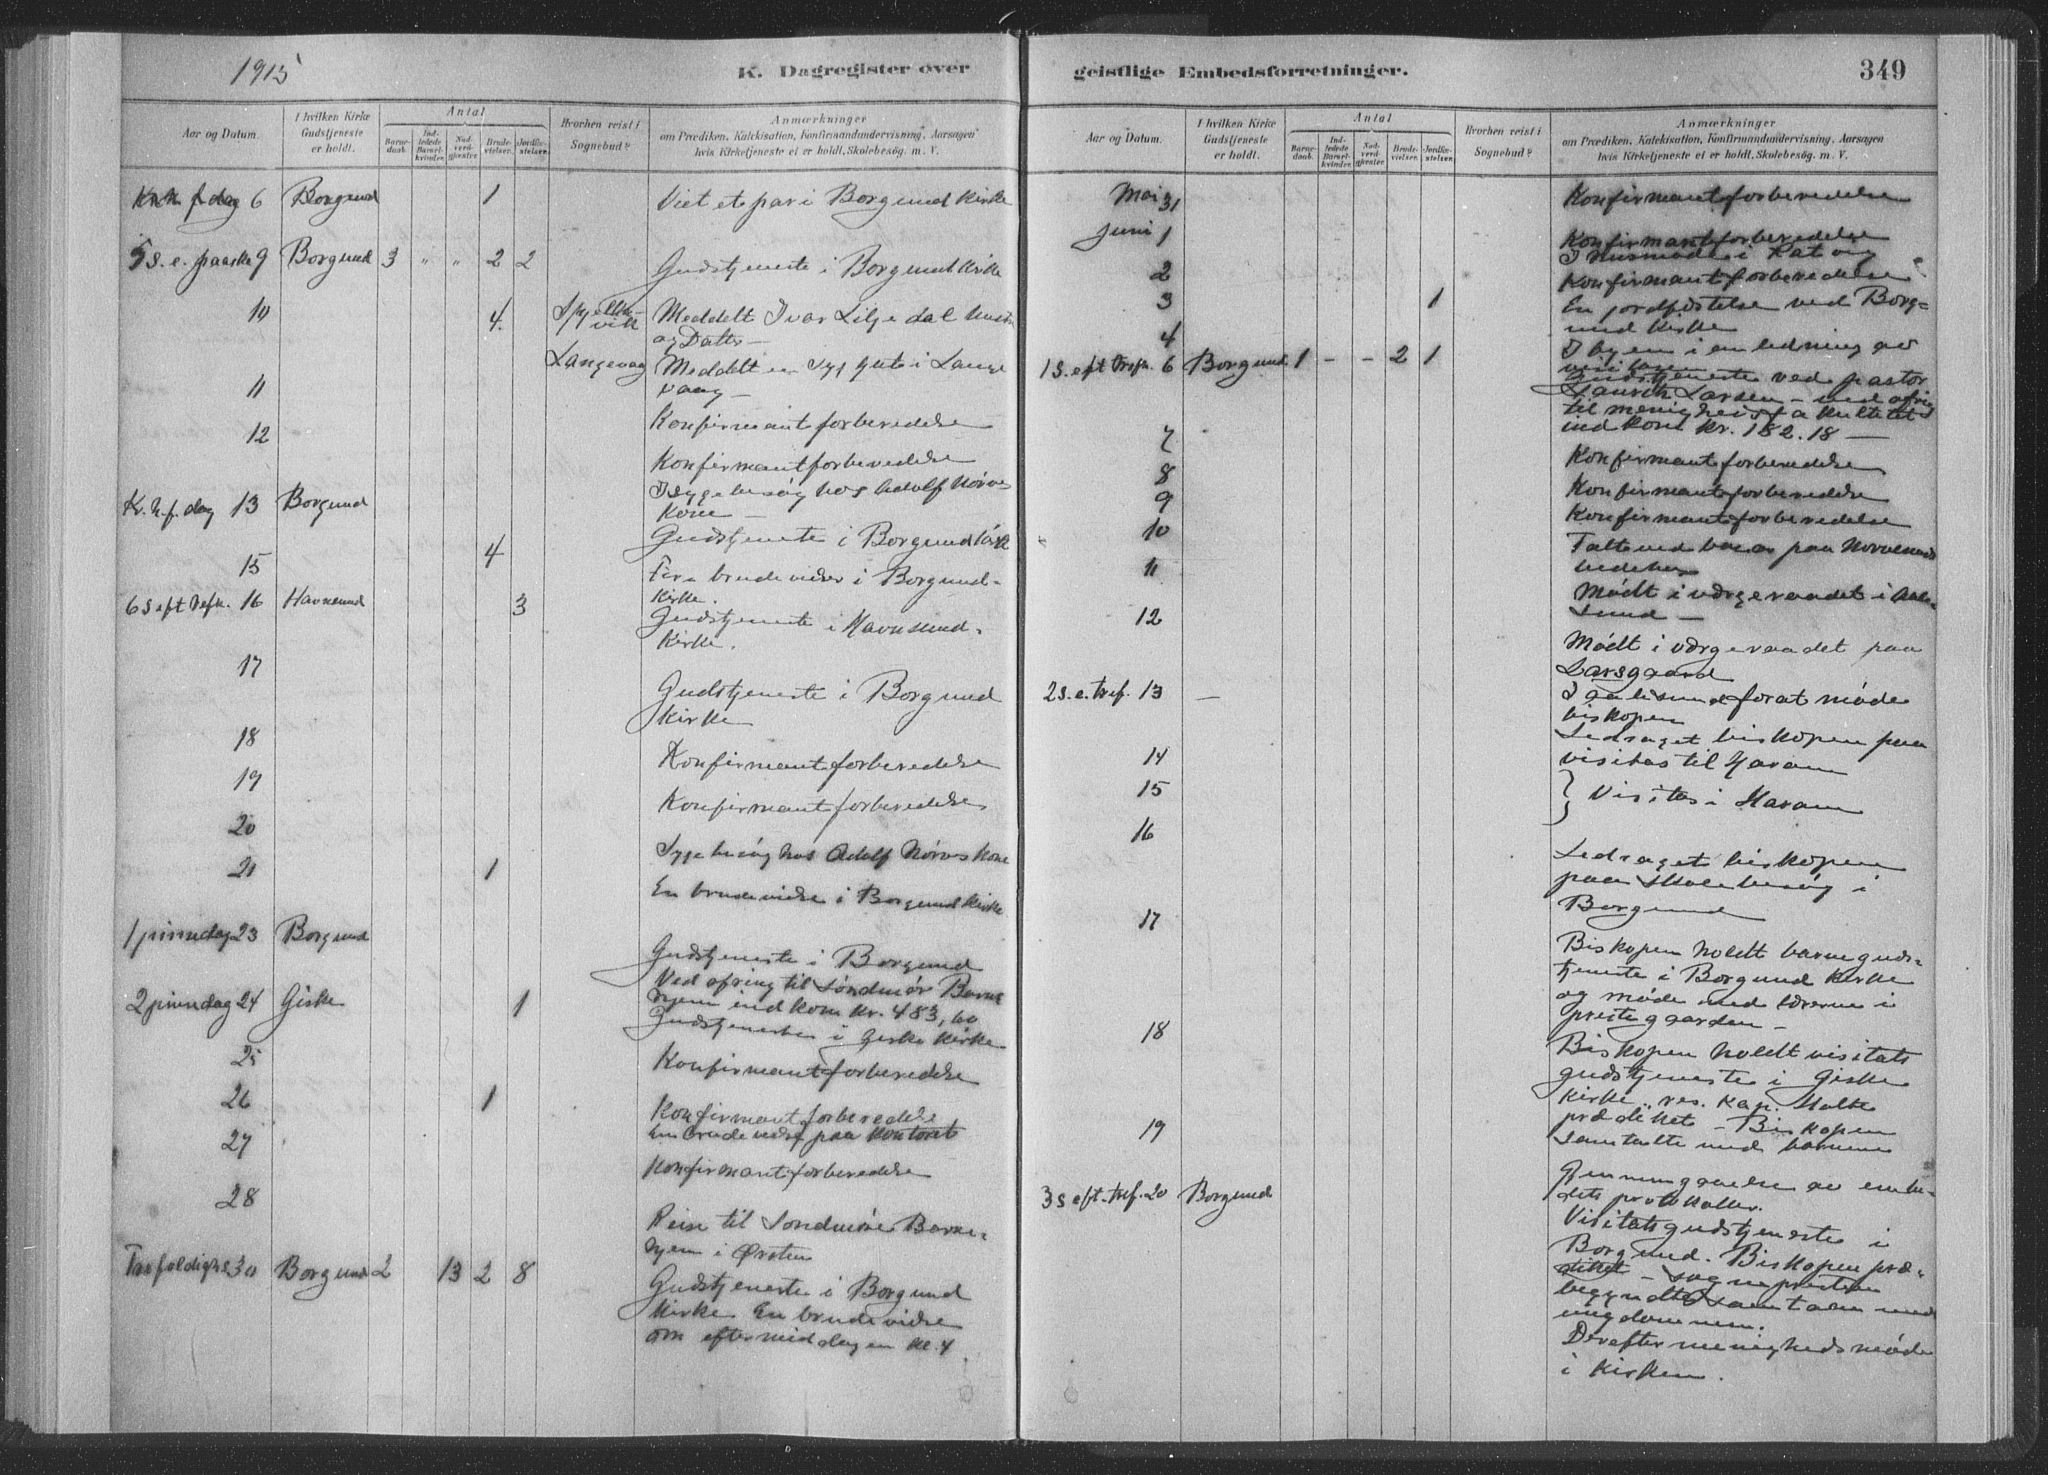 1915
K. Dagregister over
Aar og Datum.
I hvilken Kirke Gudstjeneste er holdt.
Antal
Barnedaab.
Indledede Barselkvinder.
Nadverdgjester
Brudevielser.
Jordfæstelser.
Hvorhen reist i Sognebud?
Anmærkninger
om Prædiken, Katekisation, Konfirmandundervisning, Aarsagen
hvis Kirketjeneste ei er holdt, Skolebesøg. m. V.
6 Borgund 1 Viet et par i Borgund Kirke
5 S. e. paaske 9 Borgund 3 " " 2 2 Gudstjeneste i Borgund Kirke
10 4. Meddelt Ivar Liljedal hustru
og Datter —
Langevaag Meddelt en syg gute i Lange
vaag —
11
Konfirmantforberedelse
12
Konfirmantforberedelse
Sygebesøg hos Adolf Nørves
Kone —
Kr. h. f. dag 13 Borgund
Gudstjeneste i Borgund Kirke
15 4
Fire brudevielser i Borgund-
Kirke.
6 S eft 16 Havnsund 3
Gudstjeneste i Havnsund-
Kirke.
17
Gudstjeneste i Borgund
Kirke
18
Konfirmantforberedelse
19
Konfirmantforberedelse
20
Sygebesøg hos Adolf Nørves Kone
21 1
En brudevielse i Borgund Kirke
1 pinsedag 23 Borgund
Gudstjeneste i Borgund
Ved ofring til Søndmør Barne
hjem indkom Kr. 483,60
2 pinsedag 24 Giske 1
Gudstjeneste i Giske Kirke
25
Konfirmantforberedelse
26 1
Konfirmantforberedelse
En brudevielse paa Kontoret
27
Konfirmantforberedelse
28
Reise til Søndmøre Barne-
hjem i Ørsten
30 Borgund 2 13 2 8
Gudstjeneste i Borgund
Kirke En brudevielse
om eftermiddagen kl. 4
geistlige Embedsforretninger.
349
Aar og Datum.
I hvilken Kirke Gudstjeneste er holdt.
Antal
Barnedaab.
Indledede Barselkvinder.
Nadverdgjester
Brudevielser.
Jordfæstelser.
Hvorhen reist i Sognebud?
Anmærkninger
om Prædiken, Katekisation, Konfirmandundervisning, Aarsagen
hvis Kirketjeneste ei er holdt, Skolebesøg. m. V.
Mai 31 Konfirmantforberedelse
Juni 1 Konfirmantforberedelse
2 Konfirmantforberedelse
3 1 En jordfæstelse ved Borg-
und Kirke
4 I byen i anledning av
1 S. eft Trefn. 6 Borgund 1 - - 2 1
Gudstjeneste ved pastor
Laurits Larsen — med ofring
til menighedsfakultetet
indkom Kr. 182.18 —
7 Konfirmantforberedelse
8 Konfirmantforberedelse
9 Konfirmantforberedelse
10 Talte ved basar paa
bedehus
11 Mødt i værgeraadet i Aale-
sund —
12 Mødt i værgeraadet paa
Larsgaard
2 S. e. tref. 13 — I Aalesund forat møde
biskopen
14 Ledsaget biskopen paa
visitas til Haram
15
} Visitas i Haram
16
Ledsaget biskopen
paa Skolebesøg i
Borgund
17
Biskopen holdt barneguds-
tjeneste i Borgund Kirke
og møde med lærerne i
prestegaarden —
18
Biskopen holdt visitats
gudstjeneste i Giske
Kirke, res. Kap.
prædiket — Biskopen
samtalte med børnene
19
Gjennemgaaelse av embe-
dets protokoller.
3 S eft. tref. 20 Borgund
Visitatsgudstjeneste i
Borgund. Biskopen præ-
diket — sognepresten
begyndte Samtalen med
ungdommen.
Derefter menighedsmøde
i Kirken.